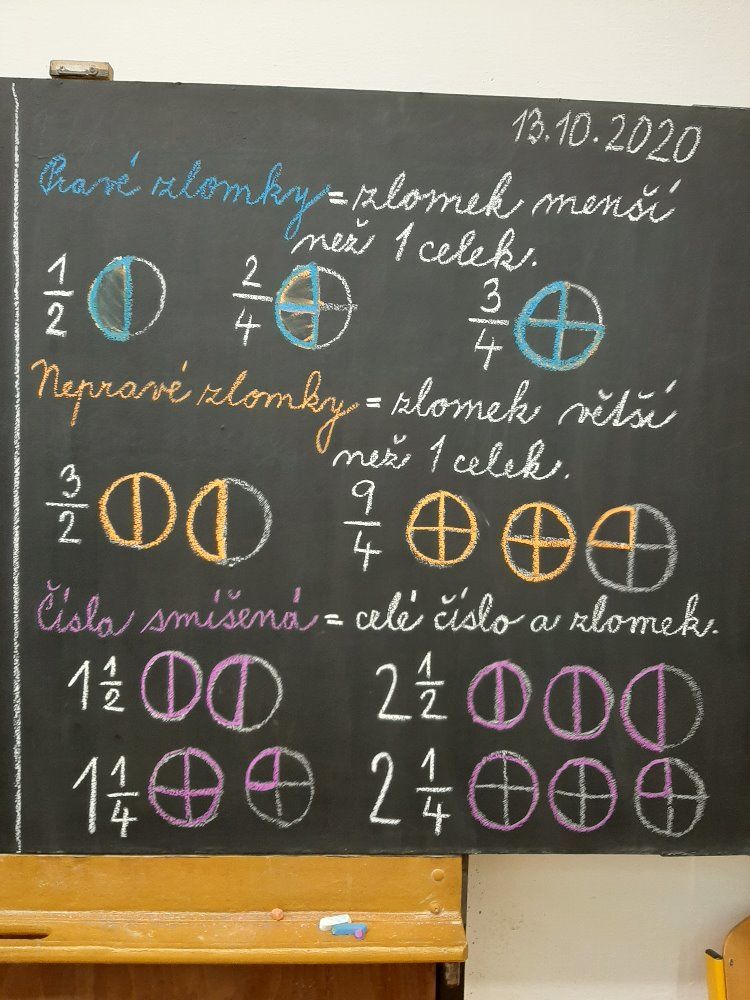 13.10.2020
Pravé zlomky = zlomek menší
než 1 celek.
1/2 2/4 3/4
Nepravé zlomky = zlomek větší
než 1 celek.
3/2 9/4
Čísla smíšená = celé číslo a zlomek.
1 1/2 2 1/2
1 1/4 2 1/4